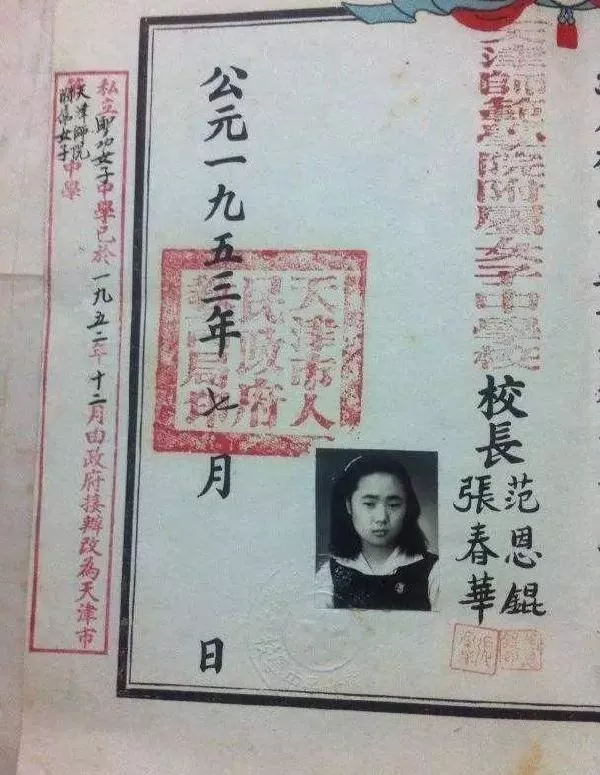 天津師範學院附屬女子中學校
校長
范恩錕
張春華
天津市人
民政府
教育局印
公元一九五三年七月 日
私立聖功女子中學已於一九五二年十二月由政府接辦改為天津市
天津師院
附属女子
中學